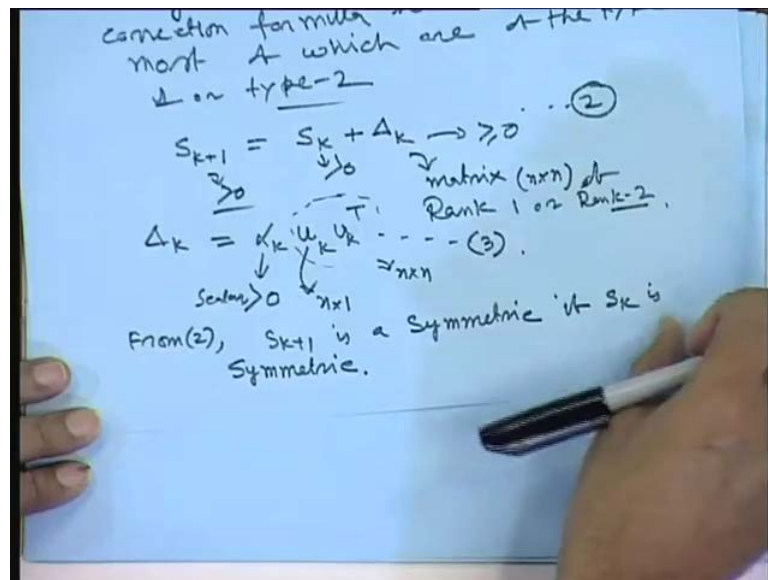 correction formula
most A which are of the
1 or type-2
S_{k+1} = S_k + Δ_k → ≥0 ... (2)
>0 >0 matrix (n×n) of
Rank 1 or Rank-2.
Δ_k = α_k u_k u_k^T - - - - (3).
Scalar>0 n×1 n×n
From(2), S_{k+1} is a symmetric if S_k is
Symmetric.